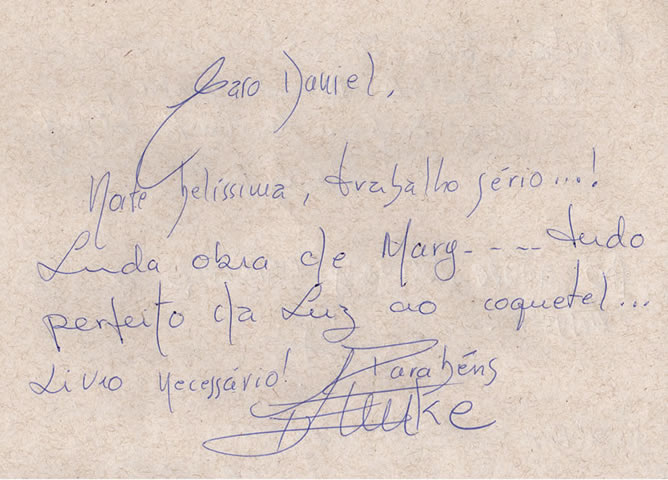 Caro Daniel,
Noite belíssima, trabalho sério...!
Linda obra de Mary---- tudo
perfeito da Luz ao coquetel...
Livro necessário! Parabéns